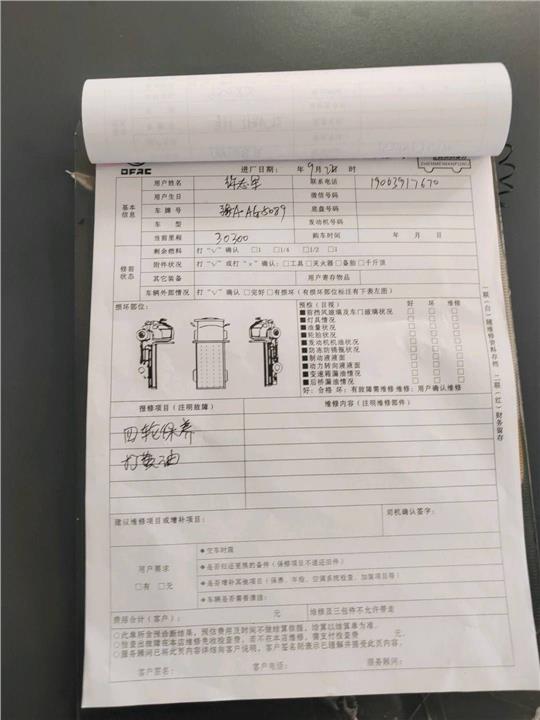 DFAC
ZHENMEIWANFUWU
进厂日期： 年 9 月 时
用户姓名 联系电话 19063917670
用户生日 微信号码
基本信息
车牌号 A·AG5089 底盘号码
车型 发动机号码
当前里程 30300 购车时间 年 月 日
修前状态
剩余燃料 打“√”确认 □1 □1/4 □1/2 □1
附件状况 打“√”或打“×”确认：□工具□灭火器□备胎□千斤顶
其它装备 用户寄存物品
车辆外部情况 打“√”确认 □完好□有损（有损坏部位标注有下表左图）
损坏部位：
预检（目视） 好 坏 维修
■前挡风玻璃及车门玻璃状况 □ □ □
■灯具情况 □ □ □
■油量状况 □ □ □
■轮胎状况 □ □ □
■发动机机油状况 □ □ □
■防冻防锈瓶状况 □ □ □
■制动液液面 □ □ □
■动力转向液液面 □ □ □
■变速箱漏油情况 □ □ □
■后桥漏油情况 □ □ □
好：合格 坏：有故障需维修 维修：用户确认维修
报修项目（注明故障） 维修内容（注明维修部件）
四轮保养
打黄油
建议维修项目或增补项目： 司机确认签字：
用户要求
□有 □无
◆交车时限
◆是否归还更换的备件（保修项目不退还旧件）
◆是否增补其他项目（保养、年检、空调系统检查、加装项目等）
◆车辆是否需要清洁：
费用合计（客户）： 元 维修及三包件不允许带走
○此单所含预诊断结果，预估费用及时间不做结算依据，结算以结算单为准。
○检查出故障在本店维修免收检查费，若不在本店维修，需支付检查费 元.
○服务顾问已将此页内容详细向客户说明，客户签名则表示已理解并接受此页内容。
客户签名： 客户电话： 服务顾问：
一联（白）随维修资料存档 二联（红）财务留存